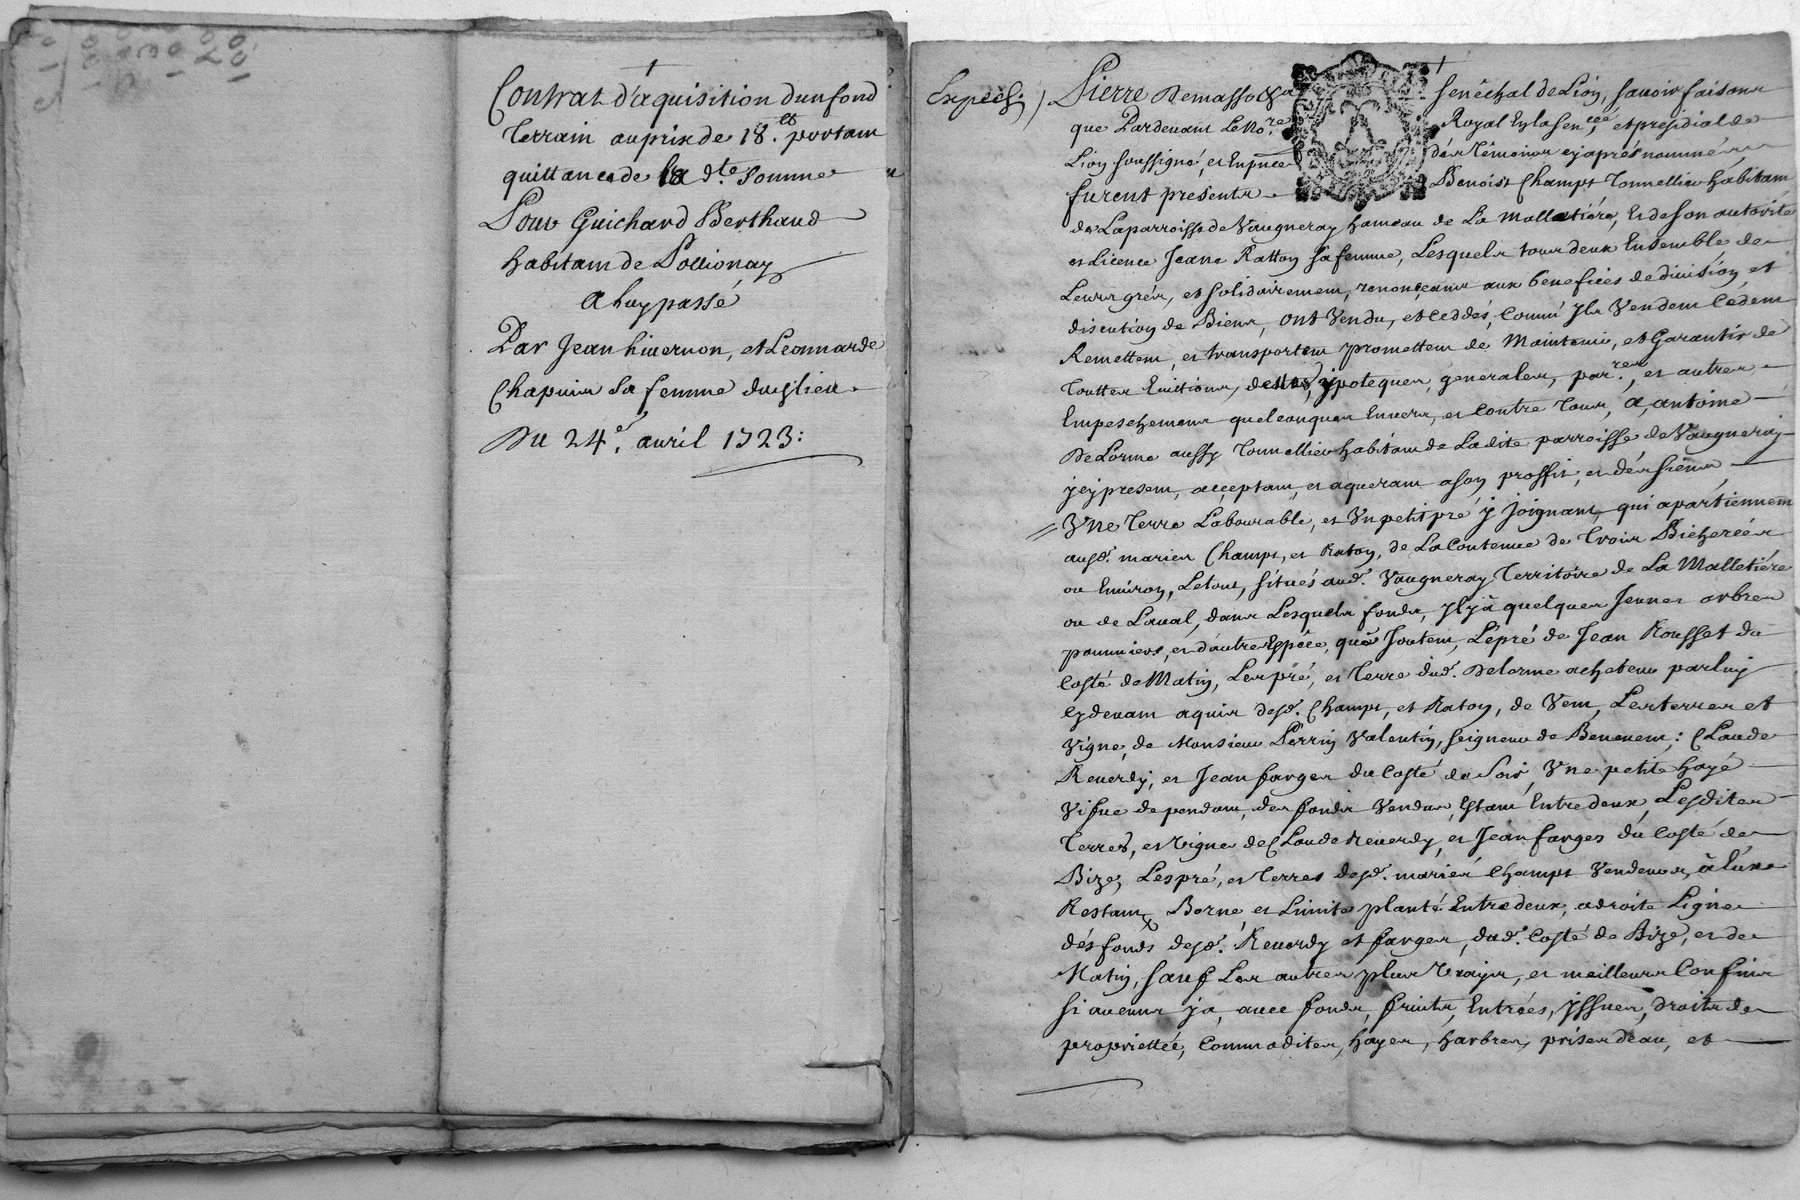 Contrat d'aquisition dun fond
Terrain au prix de 18.lt portant
quittance de la dte somme
Pour Guichard Berthaud
habitant de Pollionay
a luy passé
Par Jean hivernon, et Leonnarde
Chapuis sa femme dudit lieu
Du 24e. avril 1723:
Expéd.
Pierre Demasso Senêchal de Lion, savoir faisons
que Pardevant Le No.re Royal En la Sen.cée et presidial de
Lion soussigné, et En pnce des Têmoins cy après nommés
furent presents Benoist Champt Tonnellier habitant
de La parroisse de Vaugneray hameau de La Malletiére, Et de son autorité
et Licence Jeane Ratton sa femme, Lesquels tous deux Ensemble de
Leurs grés, et solidairement, renonçeants aux benefices de division, et
discution de Biens, ont Vendu, et Ceddés, Comm' Ils Vendent Cédent
Remettent, et transportent promettent de Maintenir, et Garantir de
Touttes Evictions, dettes, ypoteques, generales, par.res, et autres
Empeschements quelconques Envers, et Contre Tous, a, antoine
De Lorme aussy Tonnellier habitant de Ladite parroisse de Vaugneray
jcy present, acceptant, et aquerant a son proffit, et dés siens
Vne Terre Labourable, et Vn petit pré y joignant, qui apartiennent
ausd. mariés Champt, et Raton, de La Contenue de Trois Bicherées
ou Environ, Le tout, situés aud. Vaugneray Territoire de La Malletiére
ou de Laval, dans Lesquels fonds, Il y à quelques Jeunes arbres
pommiers, et d'autre Espéce, que Joutent, Le pré de Jean Rousset du
Costé de Matin, Les pré, et Terre dud. Delorme acheteur par luy
Cy devant aquis desd. Champt, et Raton, de Vent, Les terres et
Vigne, de Monsieur Perrin Valentin, seigneur de Benevent; Claude
Reverdy, et Jean farges du Costé de Soir, Vne petite haye
Vifve dependant, des fonds Vendus, Estant Entredeux, Lesdites
Terres, et Vigne de Claude Reverdy, et Jean farges du Costé de
Bize, Les pré, et Terres desd. mariés Champt Vendeurs, à Eux
Restant, Borne, et Limite planté Entredeux, a droite Ligne
dés fonds desd. Reverdy et farges, dud. Costé de Bize, et de
Matin, sauf Les autres plus Vrayes, et meilleurs Confins
si aucuns y a, avec fonds, fruits, Entrées, Yssues, droits de
proprietée, Commodites, hayes, harbres, prises deau, et